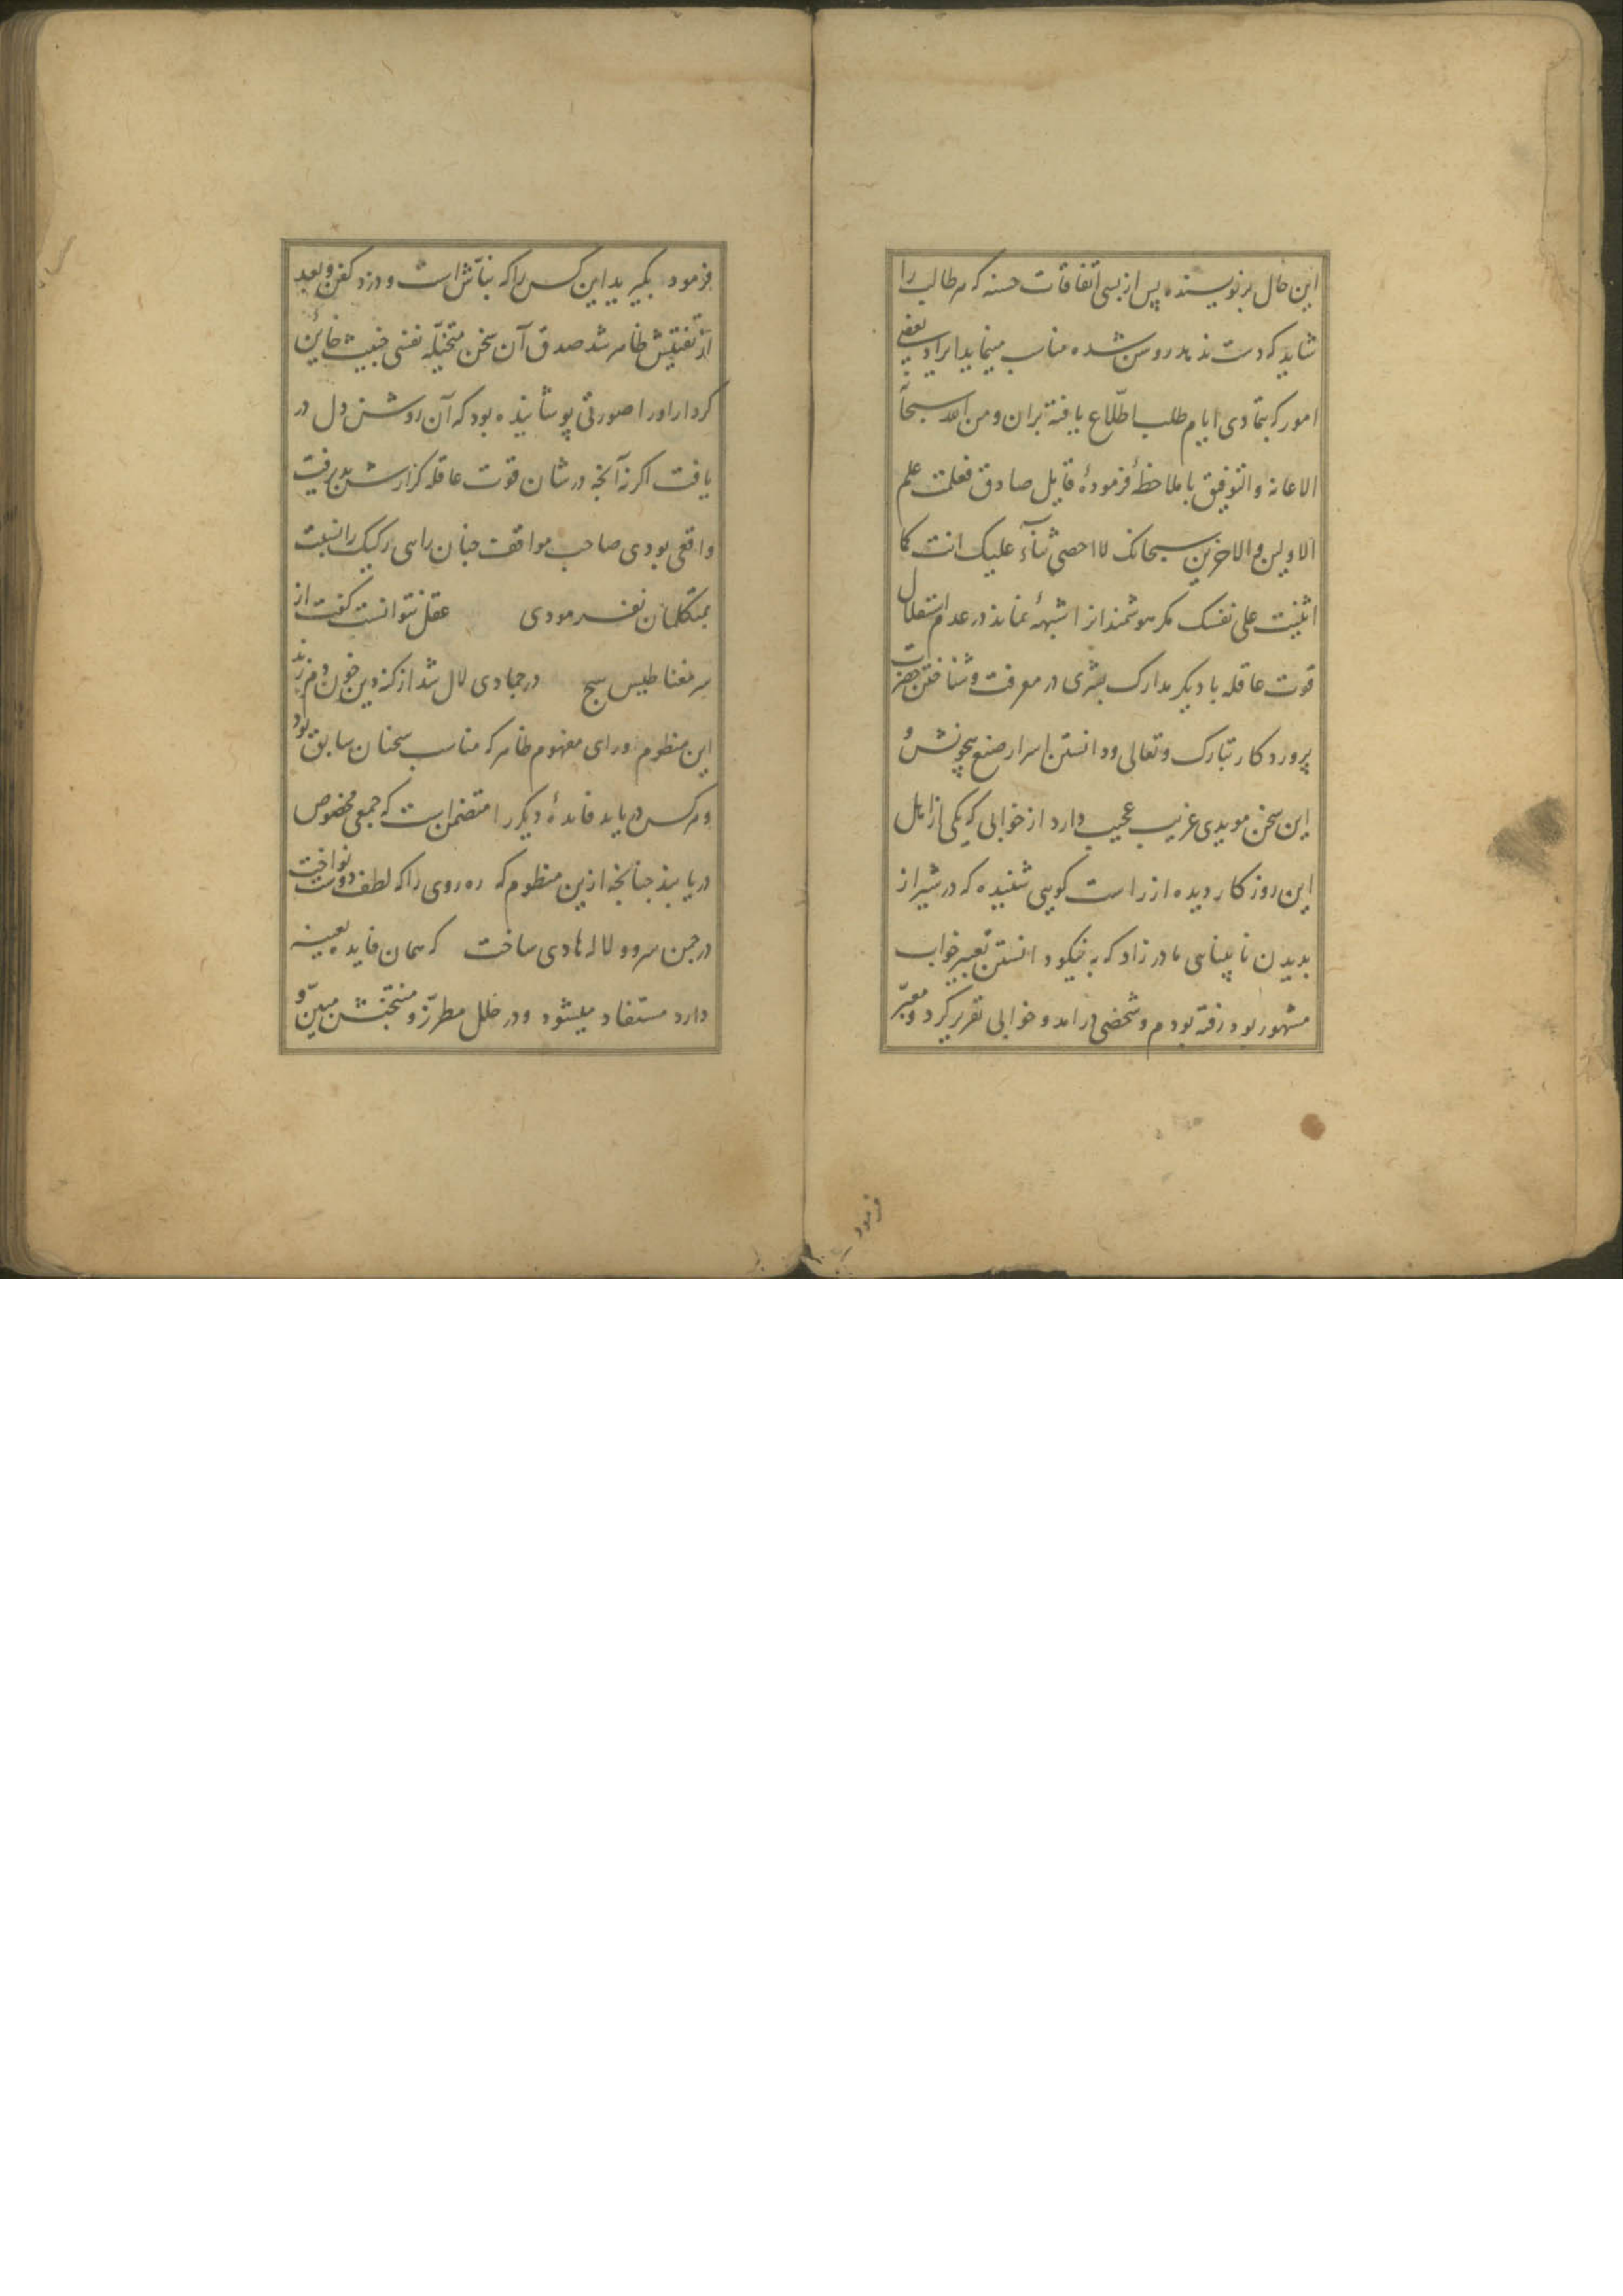 این حال بر نویسنده پس از بسی اتفاقات حسنه که هر طالب را
شاید که دست ندهد روشن شده مناسب مینماید ایراد بعضی
امور که بتمادی ایام طلب اطّلاع یافته بران ومن الله سبحانه
الاعانه والتوفیق با ملاحظهٔ فرمودهٔ قایل صادق فعلمت علم
الاولین والاخرین سبحانک لا احصی ثنآء علیک انت کما
اثنیت علی نفسک مکر هوشمندانرا شبههٔ نماند در عدم استقلال
قوت عاقله با دیکر مدارک بشری در معرفت وشناختن حضرت
پروردکار تبارک وتعالی ودانستن اسرار صنع بیچونش و
این سخن مویدی غریب عجیب دارد از خوابی که یکی از اهل
این روزکار دیده از راست کویی شنیده که در شیراز
بدیدن نابینایی مادرزاد که به نیکو دانستن تعبیر خواب
مشهور بود رفته بودم وشخصی درامد وخوابی تقریر کرد ومعبّر
فرمود
فرمود بکیرید این کس را که نبّاش است ودزد کفن وبعد
از تفتیش ظاهر شد صدق آن سخن متخیّله نفسی خبیث خاین
کردار اورا صورتی پوشانیده بود که آن روشن دل در
یافت اکر نه آنچه در شان قوت عاقله کزارش پذیرفت
واقعی بودی صاحب مواقف چنان رایی رکیک را نسبت
بمتکلمان نفرمودی عقل نتوانست کفت از
سر مغناطیس هیچ در جمادی لال شد از کنه دین چون دم زند
این منظوم ورای مفهوم ظاهر که مناسب سخنان سابق بود
وهر کس دریابد فایدهٔ دیکر را متضمن است که جمعی مخصوص
دریابند چنانچه ازین منظوم که ره روی را که لطف دوست نواخت
در چمن سرو ولاله هادی ساخت که همان فایده بعینه
دارد مستفاد میشود ودر حلل مطرّز ومنتخبش مبیّن و